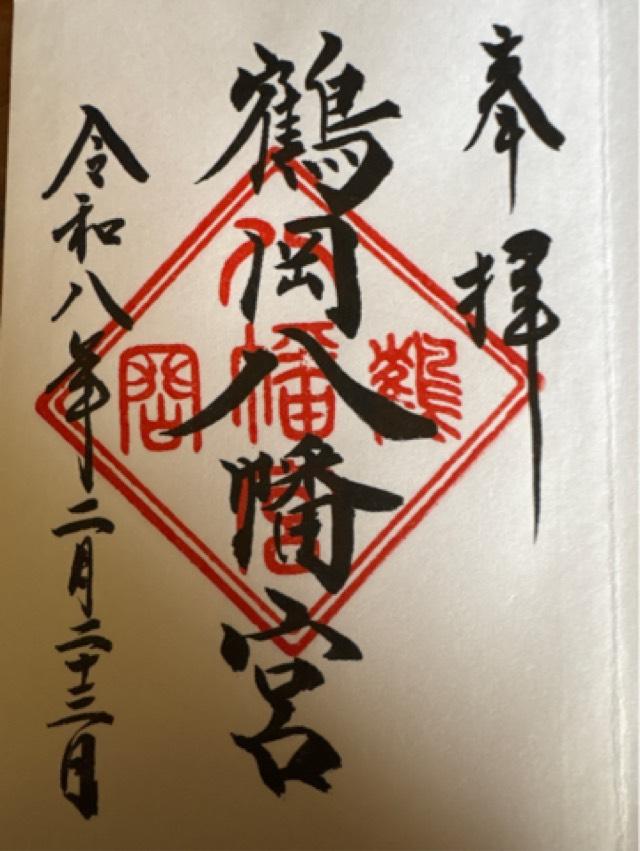 奉拝
鶴岡八幡宮
令和八年二月二十三日
鶴
八幡宮
岡